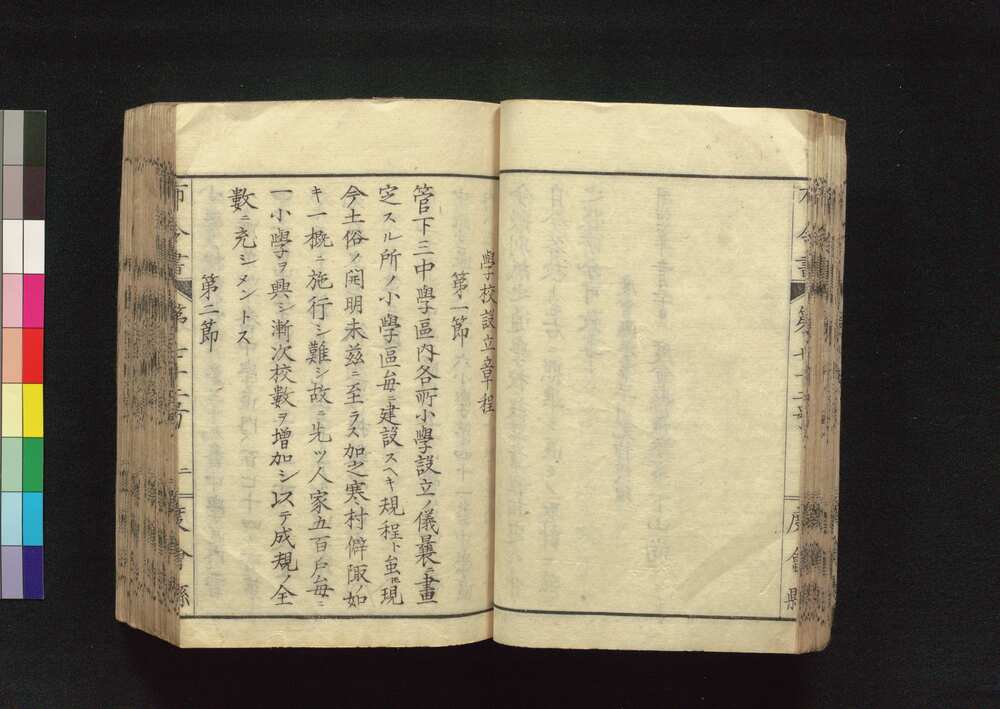 學校設立章程
第一節
管下三中學區內各所小學設立ノ儀曩ニ畫
定スル所ノ小學區每ニ建設スヘキ規程ト虽㆑現
今土俗ノ開明未兹ニ至ラス加之寒村僻陬ノ如
キ一概ニ施行シ難シ故ニ先ツ人家五百戶每ニ
一小學ヲ興シ漸次校數ヲ增加シ以テ成規ノ全
數ニ充シメントス
第二節
布令書 第七十二号 二 度會縣